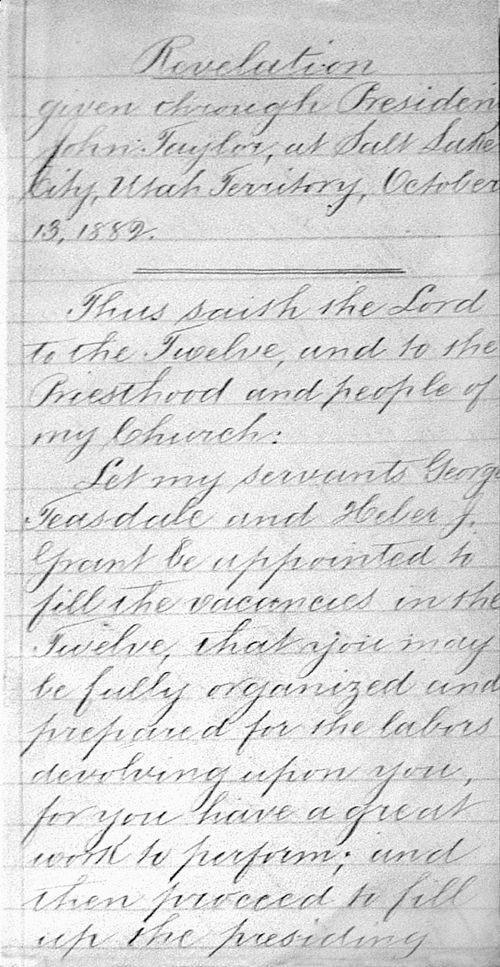 Revelation
given through Presiden
John Taylor, at Salt Lake
City, Utah Territory, October
13, 1882.
Thus saith the Lord
to the Twelve, and to the
Priesthood and people of
my Church:
Let my servants George
Teasdale and Heber J.
Grant be appointed to
fill the vacancies in the
Twelve, that you may
be fully organized and
prepared for the labors
devolving upon you,
for you have a great
work to perform; and
then proceed to fill
up the presiding